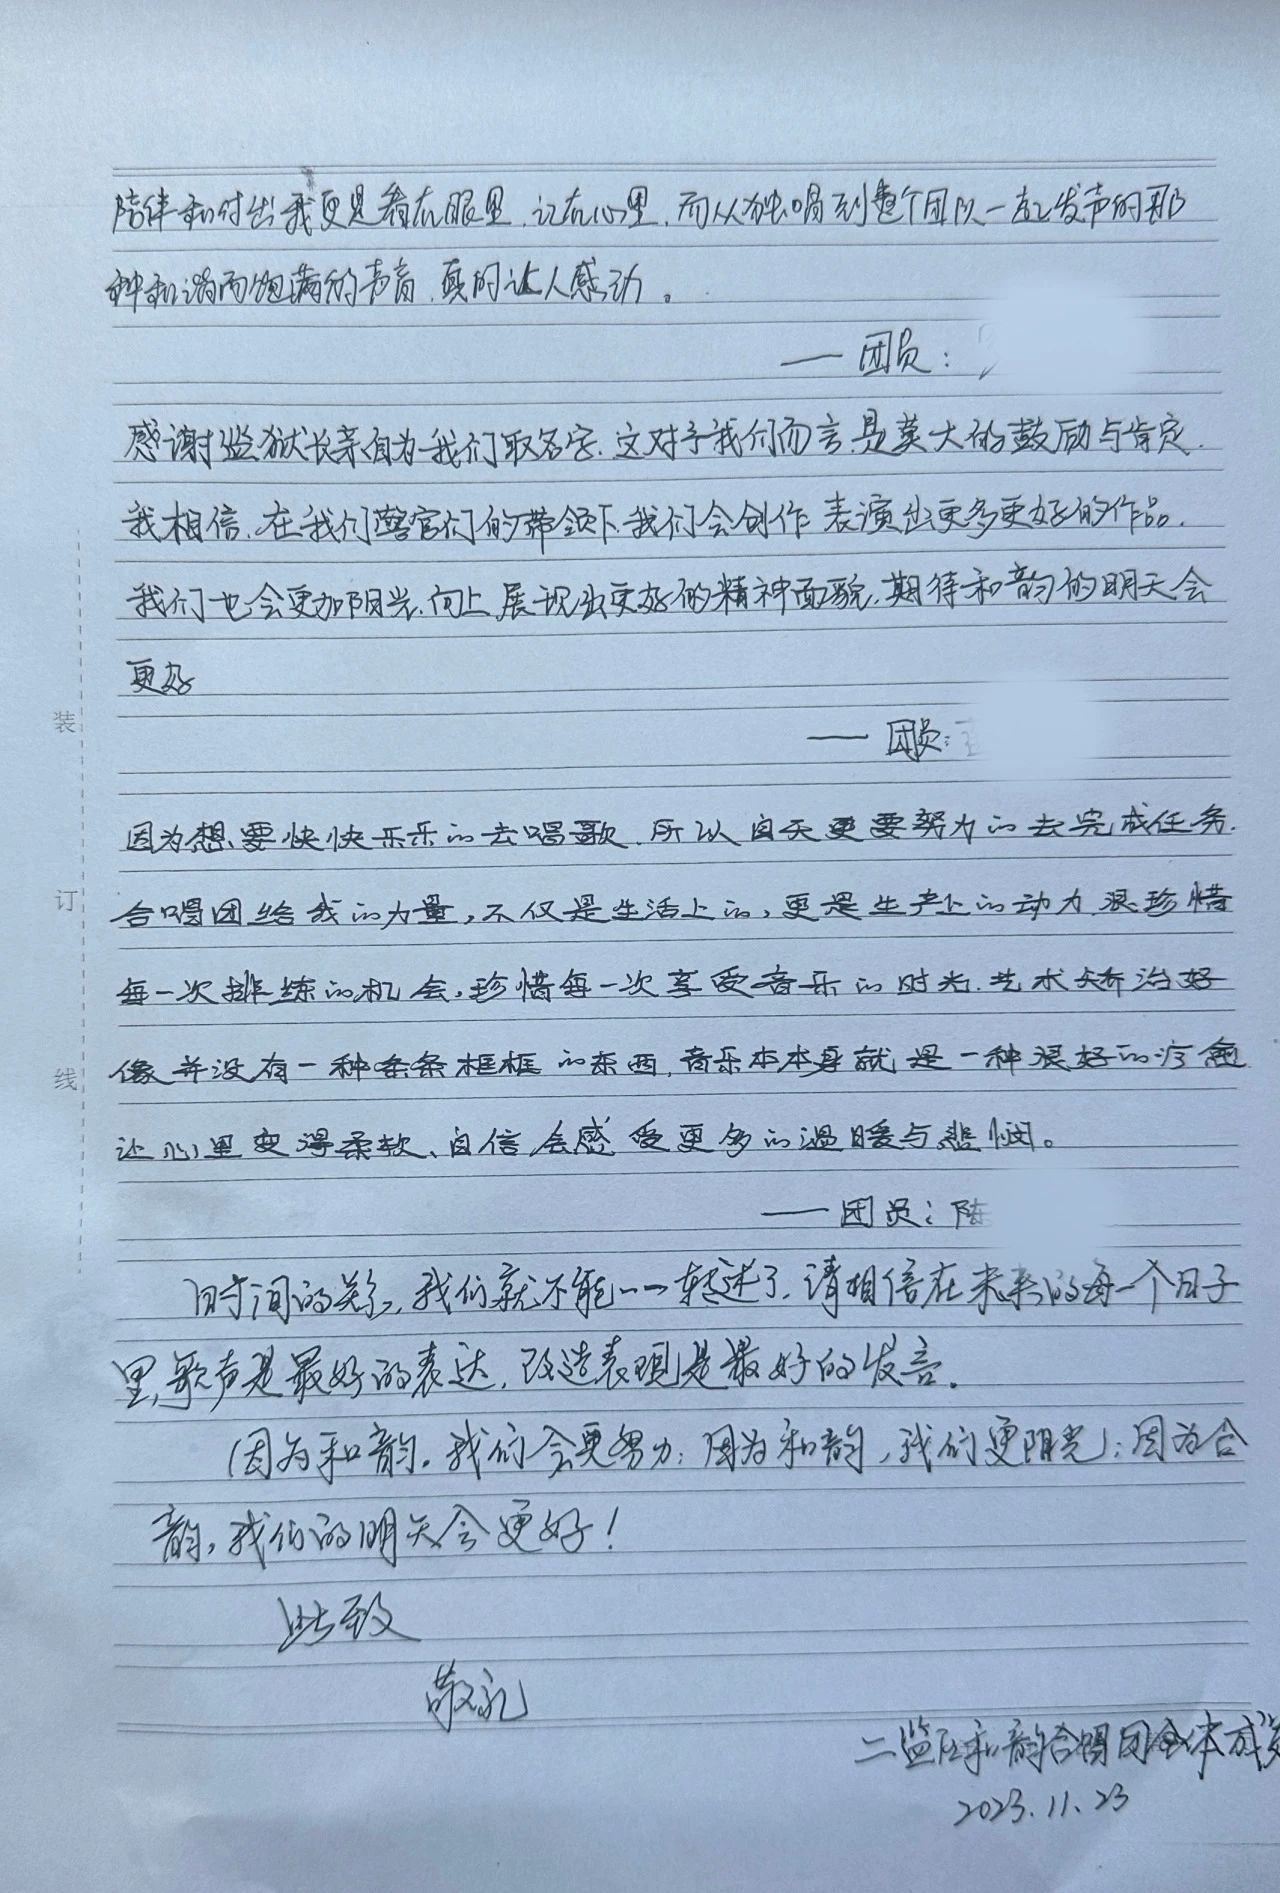 陪伴和付出我更是看在眼里，记在心里，而从独唱到整个团队一起发声的那
种和谐而饱满的声音，真的让人感动。
——团员：
感谢监狱长亲自为我们取名字，这对于我们而言是莫大的鼓励与肯定，
我相信，在我们警官们的带领下，我们会创作表演出更多更好的作品，
我们也会更加阳光、向上，展现出更好的精神面貌，期待和韵的明天会
更好
——团员：
因为想要快快乐乐的去唱歌，所以白天更要努力的去完成任务，
合唱团给我的力量，不仅是生活上的，更是生产上的动力，很珍惜
每一次排练的机会，珍惜每一次享受音乐的时光，艺术矫治好
像并没有一种条条框框的东西，音乐本本身就是一种很好的疗愈
让心里变得柔软、自信，会感受更多的温暖与悲悯。
——团员：陈
时间的关系，我们就不能一一转述了，请相信在未来的每一个日子
里，歌声是最好的表达，改造表现是最好的发言。
因为和韵，我们会更努力；因为和韵，我们更阳光；因为合
韵，我们的明天会更好！
此致
敬礼
二监区和韵合唱团全体成员
2023.11.23
装
订
线